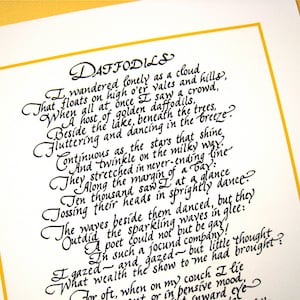 DAFFODILS
I wandered lonely as a cloud
That floats on high o'er vales and hills,
When all at once I saw a crowd,
A host of golden daffodils,
Beside the lake, beneath the trees,
Fluttering and dancing in the breeze.
Continuous as the stars that shine,
And twinkle on the milky way,
They stretched in never-ending line
Along the margin of a bay:
Ten thousand saw I at a glance
Tossing their heads in sprightly dance.
The waves beside them danced, but they
Outdid the sparkling waves in glee:
A poet could not be gay!
In such a jocund company!
I gazed - and gazed - but little thought
What wealth the show to me had brought:
For oft, when on my couch I lie
or in pensive mood,
inward eye